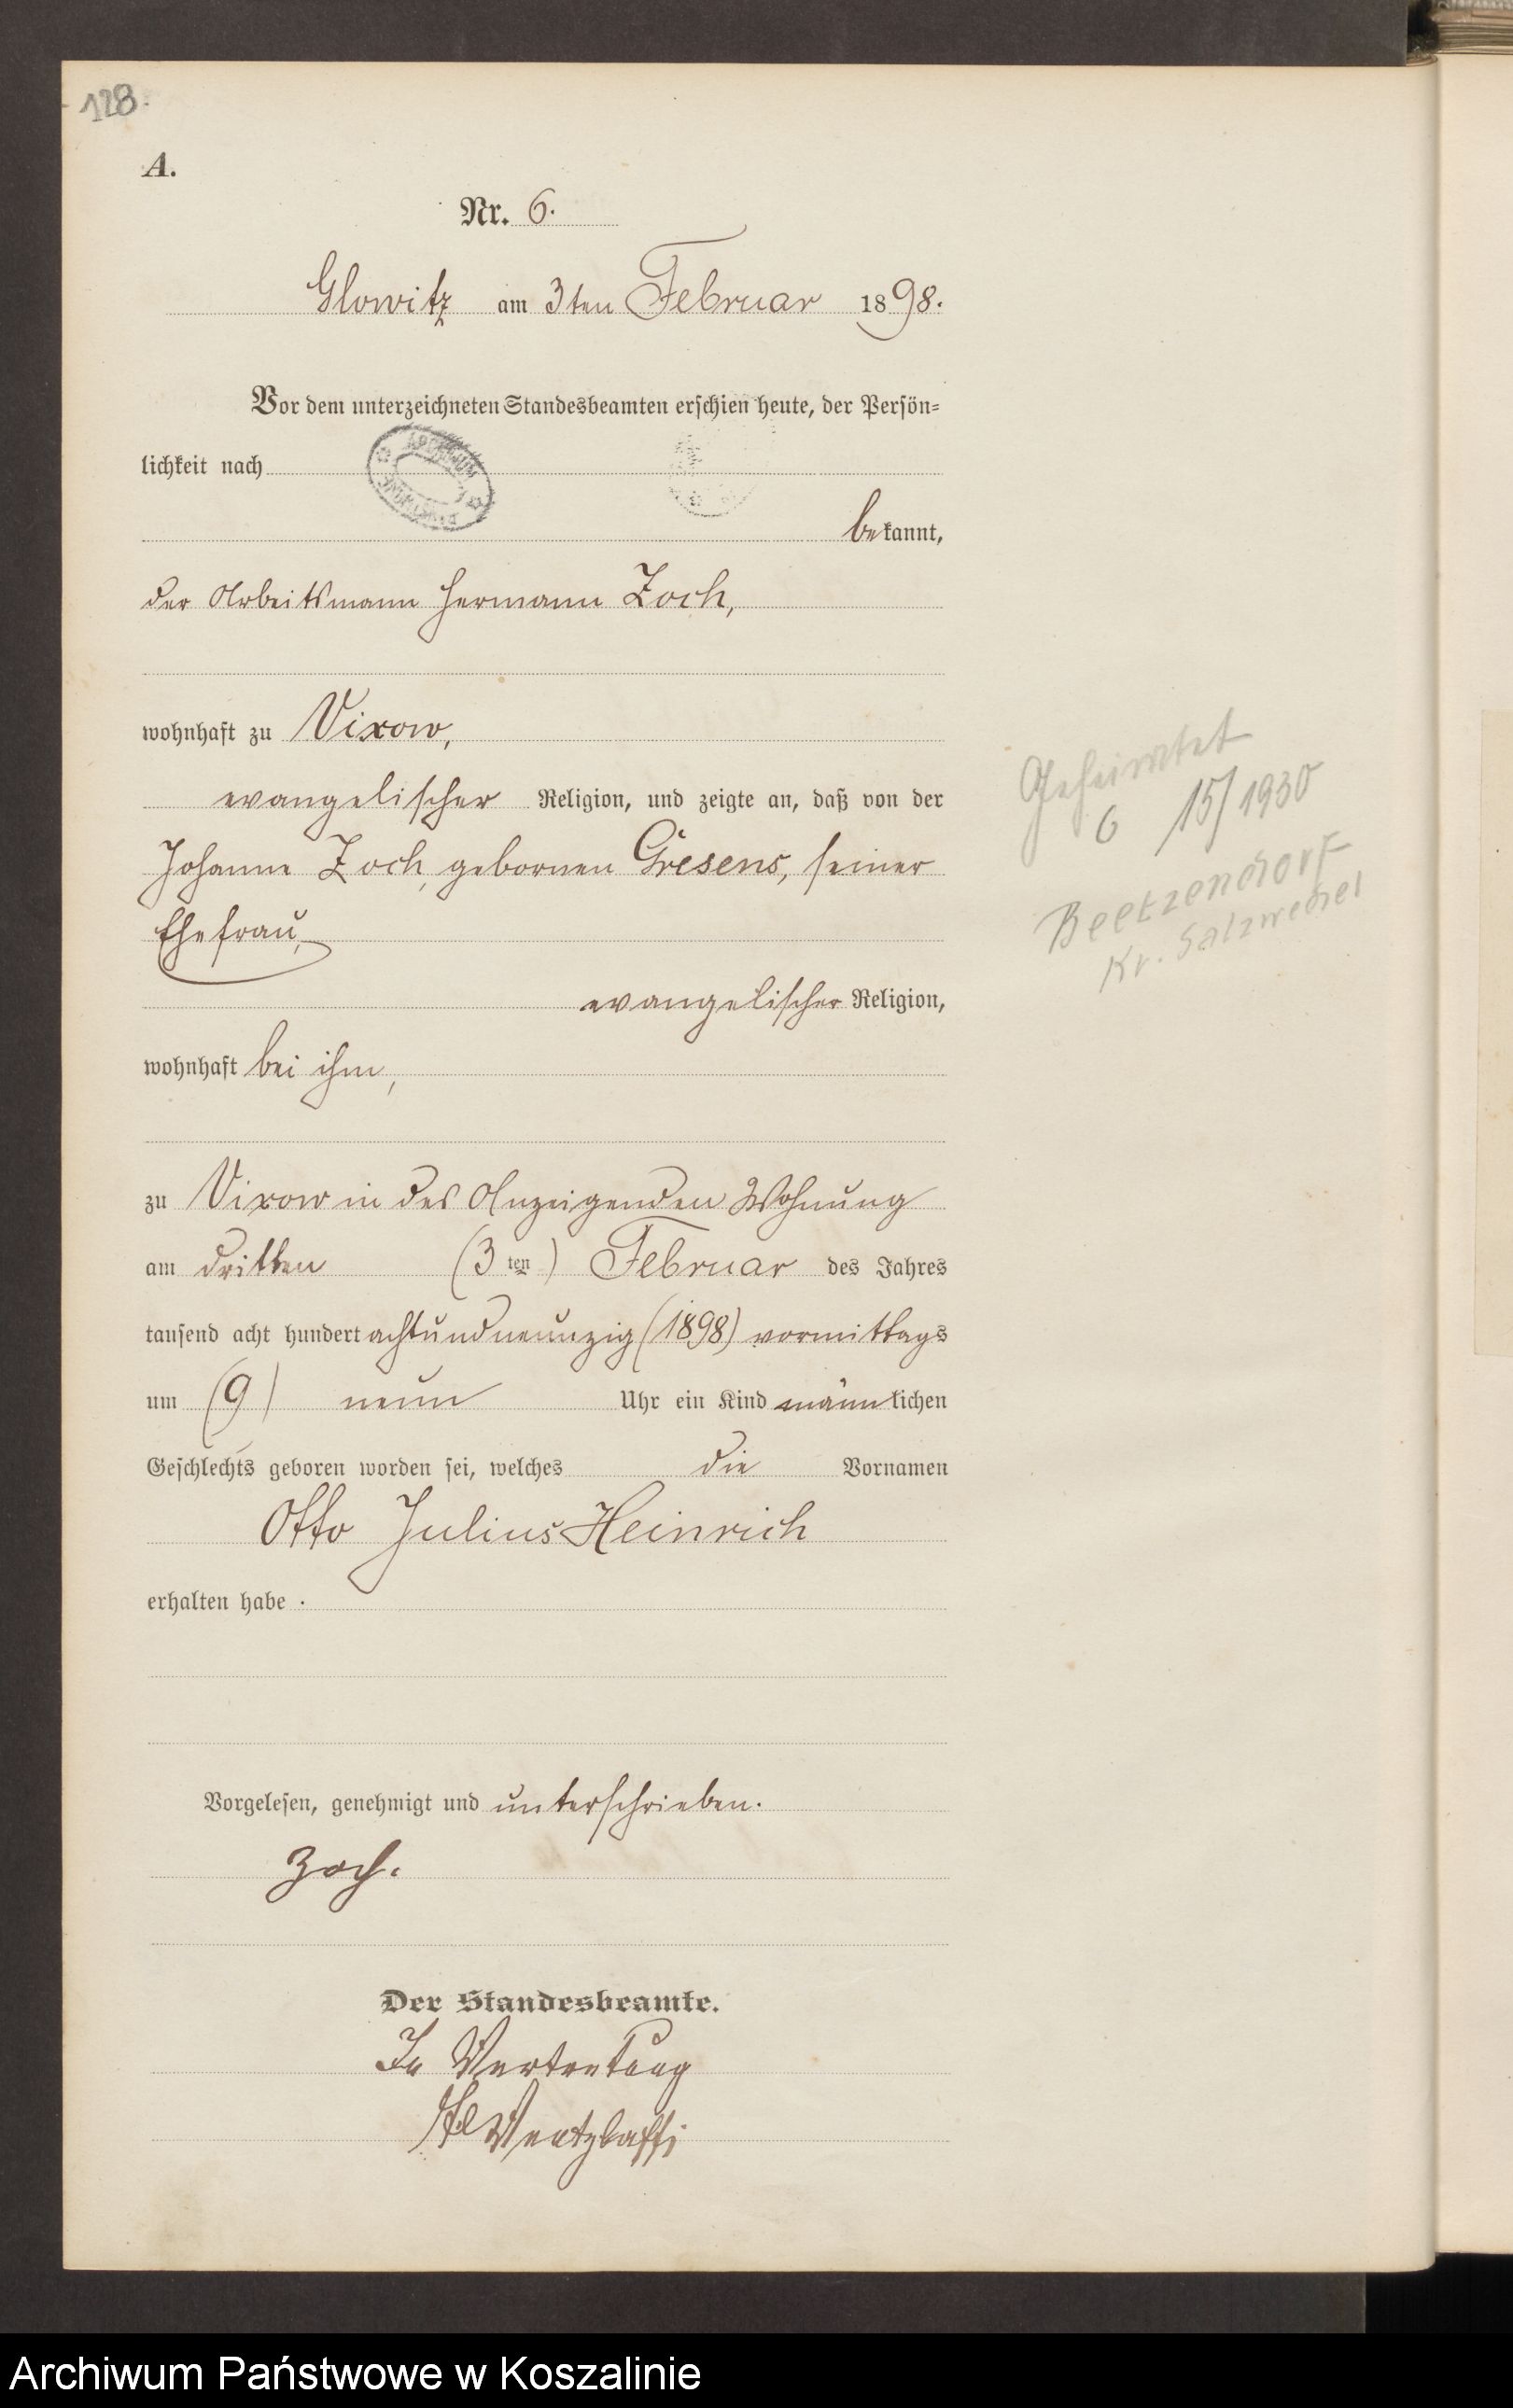 128.
A.
Nr. 6.
Glowitz am 3ten Februar 1898.
Vor dem unterzeichneten Standesbeamten erschien heute, der Persön-
lichkeit nach
bekannt,
der Arbeitsmann Hermann Zoch,
wohnhaft zu Vixow,
evangelischer Religion, und zeigte an, daß von der
Johanne Zoch, gebornen Gresens, seiner
Ehefrau,
evangelischer Religion,
wohnhaft bei ihm,
zu Vixow in des Anzeigenden Wohnung
am dritten (3 ten) Februar des Jahres
tausend acht hundert achtundneunzig (1898) vormittags
um (9) neun Uhr ein Kind männlichen
Geschlechts geboren worden sei, welches die Vornamen
Otto Julius Heinrich
erhalten habe .
Vorgelesen, genehmigt und unterschrieben.
Zoch.
Der Standesbeamte.
In Vertretung
Geheiratet
6 15/1930
Beetzendorf
Kr. Salzwedel
Archiwum Państwowe w Koszalinie